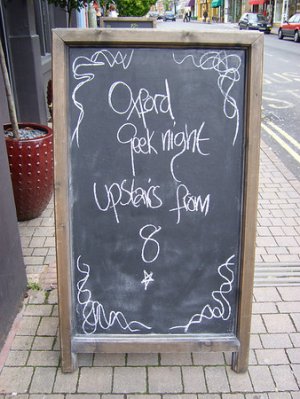 Oxford
geek night
upstairs from
8